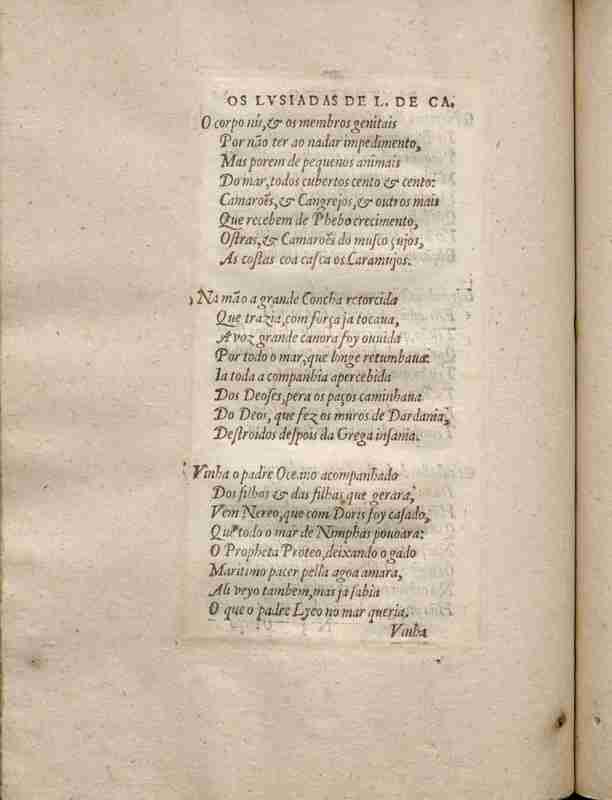 OS LVSIADAS DE L. DE CA.
O corpo nú, & os membros genitais
Por não ter ao nadar impedimento,
Mas porem de pequenos animais
Do mar, todos cubertos cento & cento:
Camarões, & Cangrejos, & outros mais
Que recebem de Phebo crecimento,
Ostras, & Camarões do musco çujos,
Às costas coa casca os Caramujos.
Na mão a grande Concha retorcida
Que trazia, com força ja tocaua,
A voz grande canora foy ouuida
Por todo o mar, que longe retumbaua:
Ia toda a companhia apercebida
Dos Deoses, pera os paços caminhaua
Do Deos, que fez os muros de Dardania,
Destroidos despois da Grega insania.
Vinha o padre Oceano acompanhado
Dos filhos & das filhas que gerara,
Vem Nereo, que com Doris foy casado,
Que todo o mar de Nimphas pouoara:
O Propheta Proteo, deixando o gado
Maritimo pacer pella agoa amara,
Ali veyo tambem, mas ja sabia
O que o padre Lyeo no mar queria.
Vinha